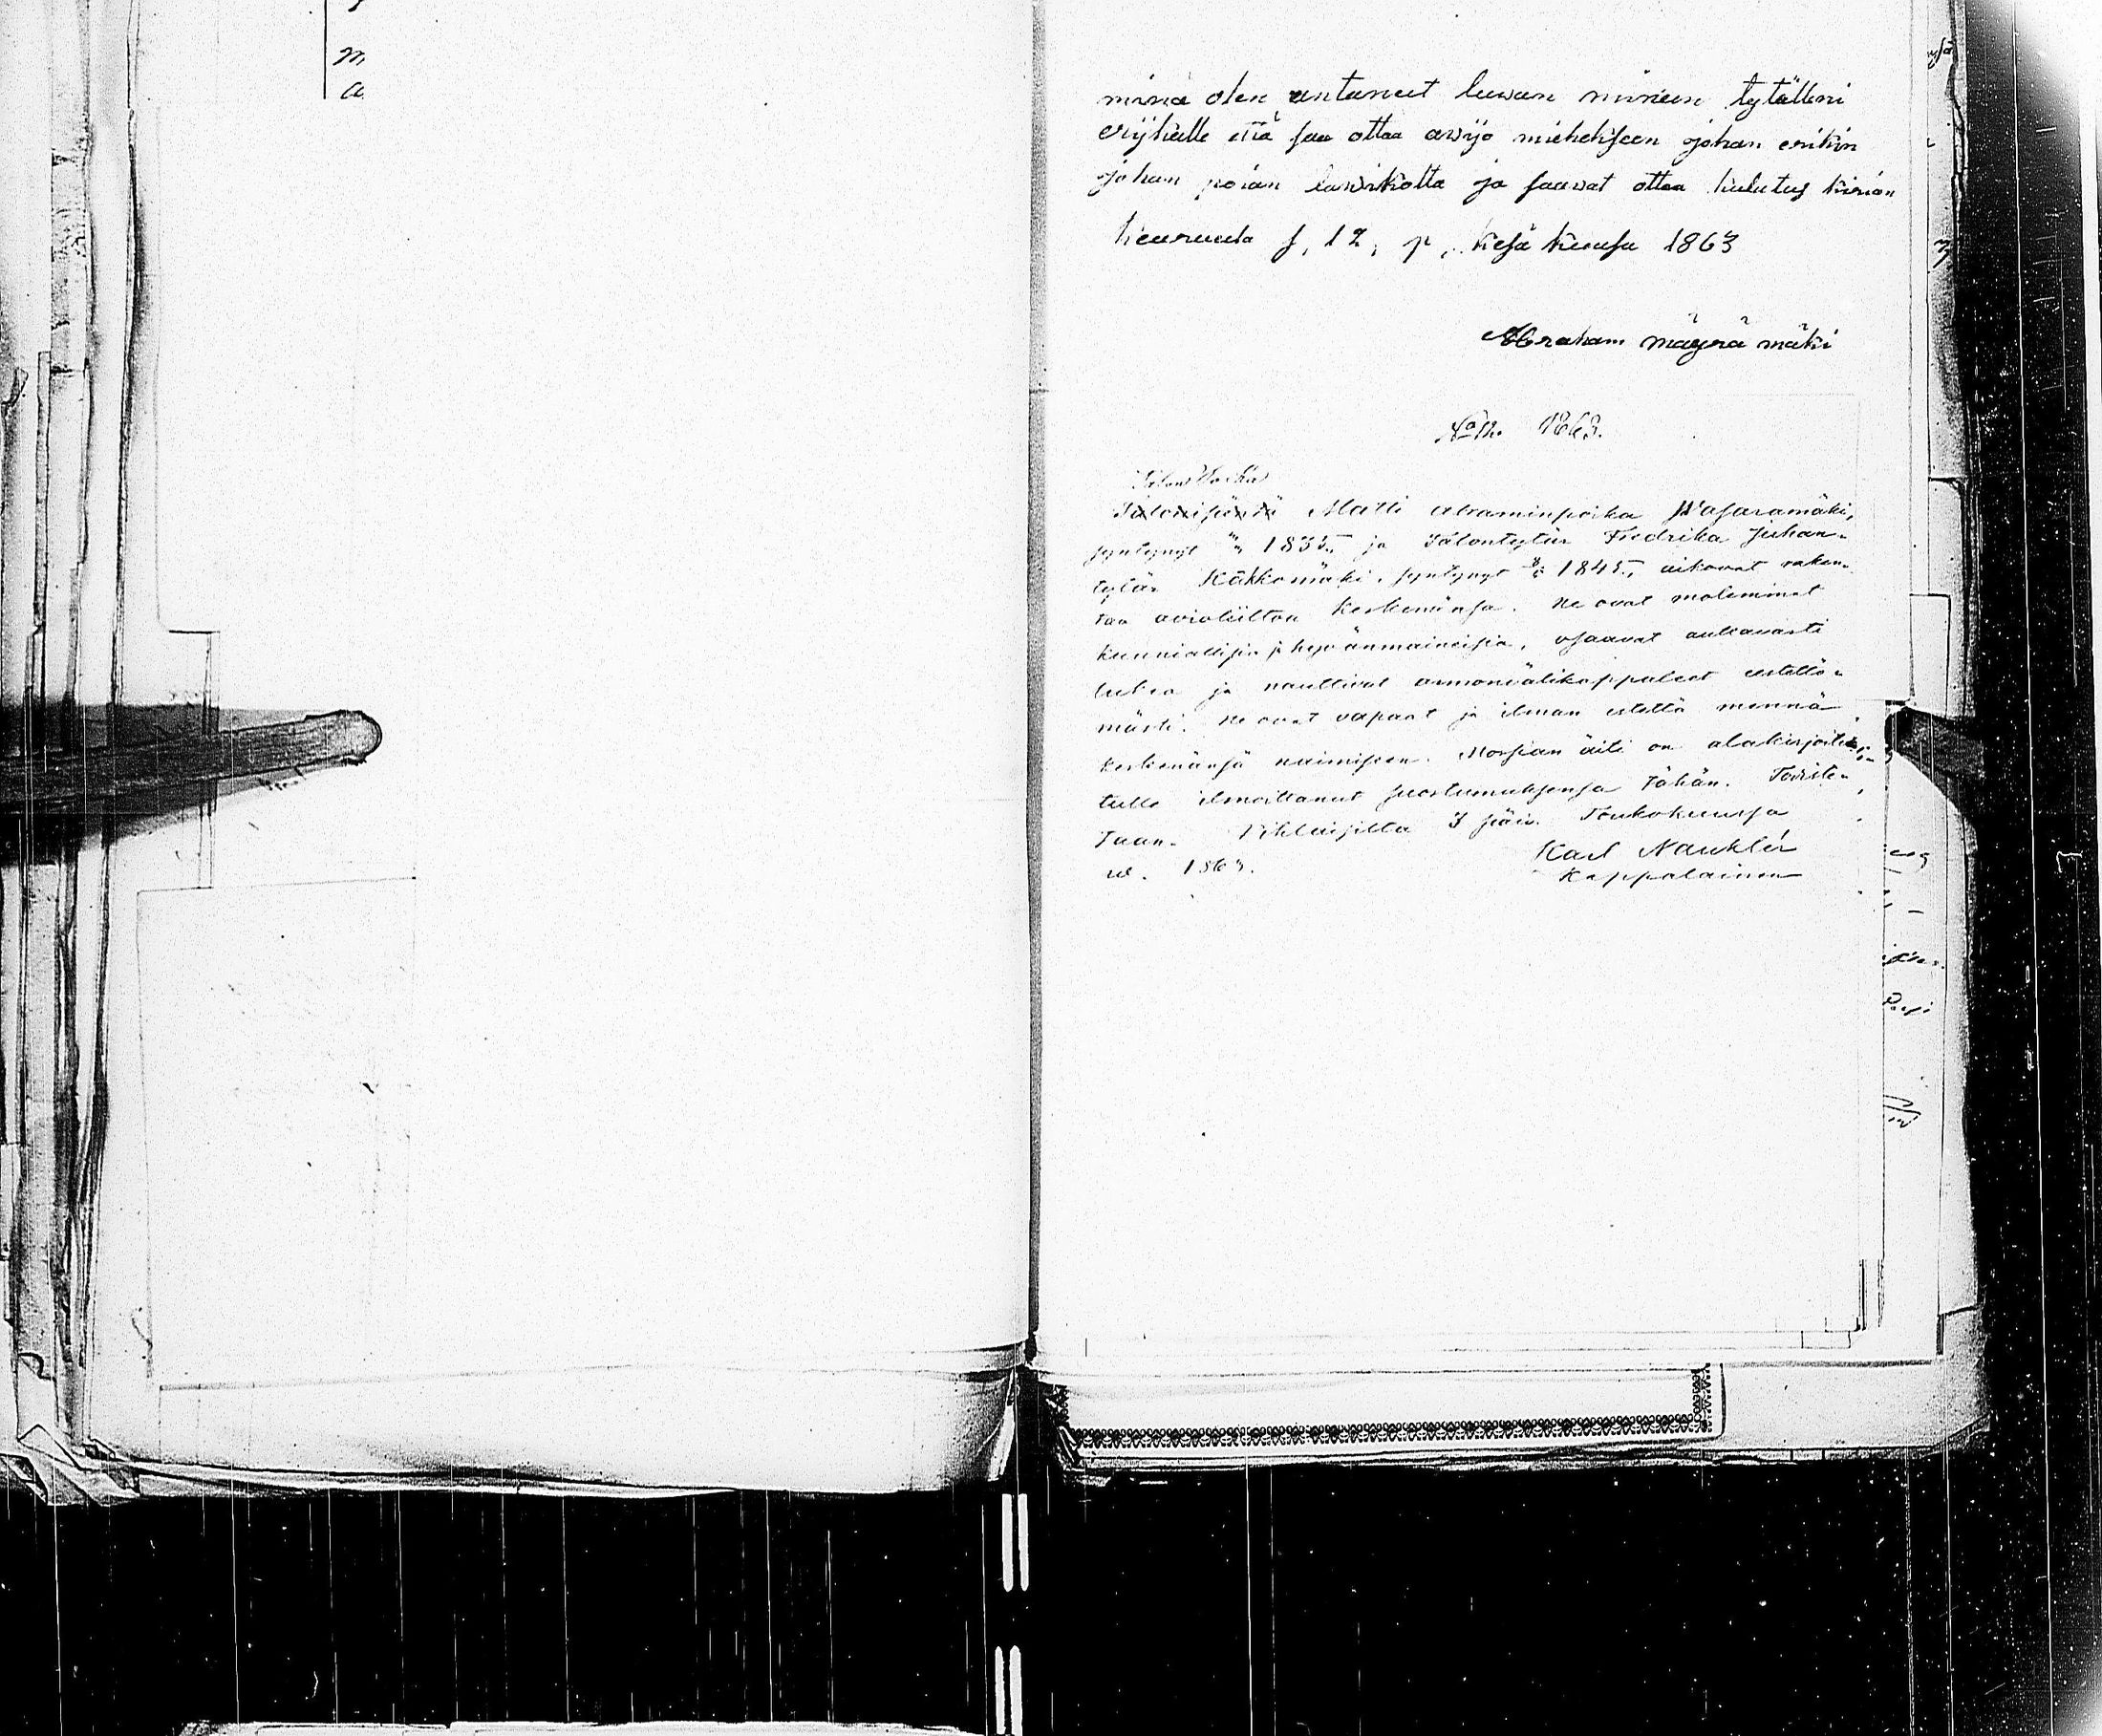 minä olen antaneet luwan minun tytälleni
erijkalle että saa ottaa awijo miehekseen johan erikin
johan poian lawikolta ja saavat ottaa kulutus kirian
keuruula s, 12, p, kesä kuusa 1863
Abraham mäyrä mäki
No 12. 1863.
Talontytär Fredrika Juhan-
Matti Abraminpoika Wasaramäki,
syntynyt 1835 ja
tytär Käkkömäki, syntynyt 1845, aikovat raken-
taa avioliiton keskenänsä. Ne ovat molemmat
kunniallisia ja hyvänmaineisia, osaavat auttavasti
lukea ja nauttivat armonvälikappaleet estettö-
mästi. Ne ovat vapaat ja ilman estettä mennä
keskenänsä naimiseen. Morsian äiti on alakirjoite-
tulle ilmoittanut suostumuksensa tähän. Toviste-
taan. Pihlaisilta 3 päiv. Toukokuussa
w. 1863.
Karl Nauklér
Kappalainen